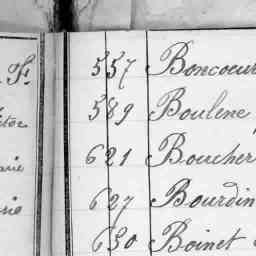 F.
557 Boncoeur
589 Boulene
621 Boucher
627 Bourdin
630 Boinet